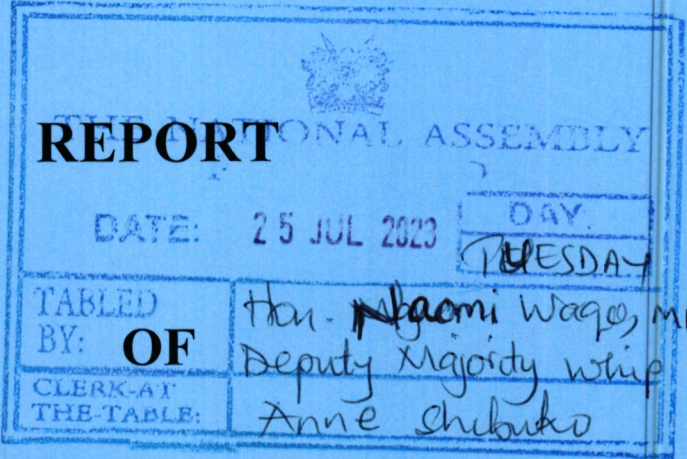 THE NATIONAL ASSEMBLY
REPORT
DATE: 25 JUL 2023
DAY.
TUESDAY
TABLED BY:
Hon. Naomi Waqo, MP
Deputy Majority Whip
OF
CLERK-AT THE-TABLE:
Anne Shibuko